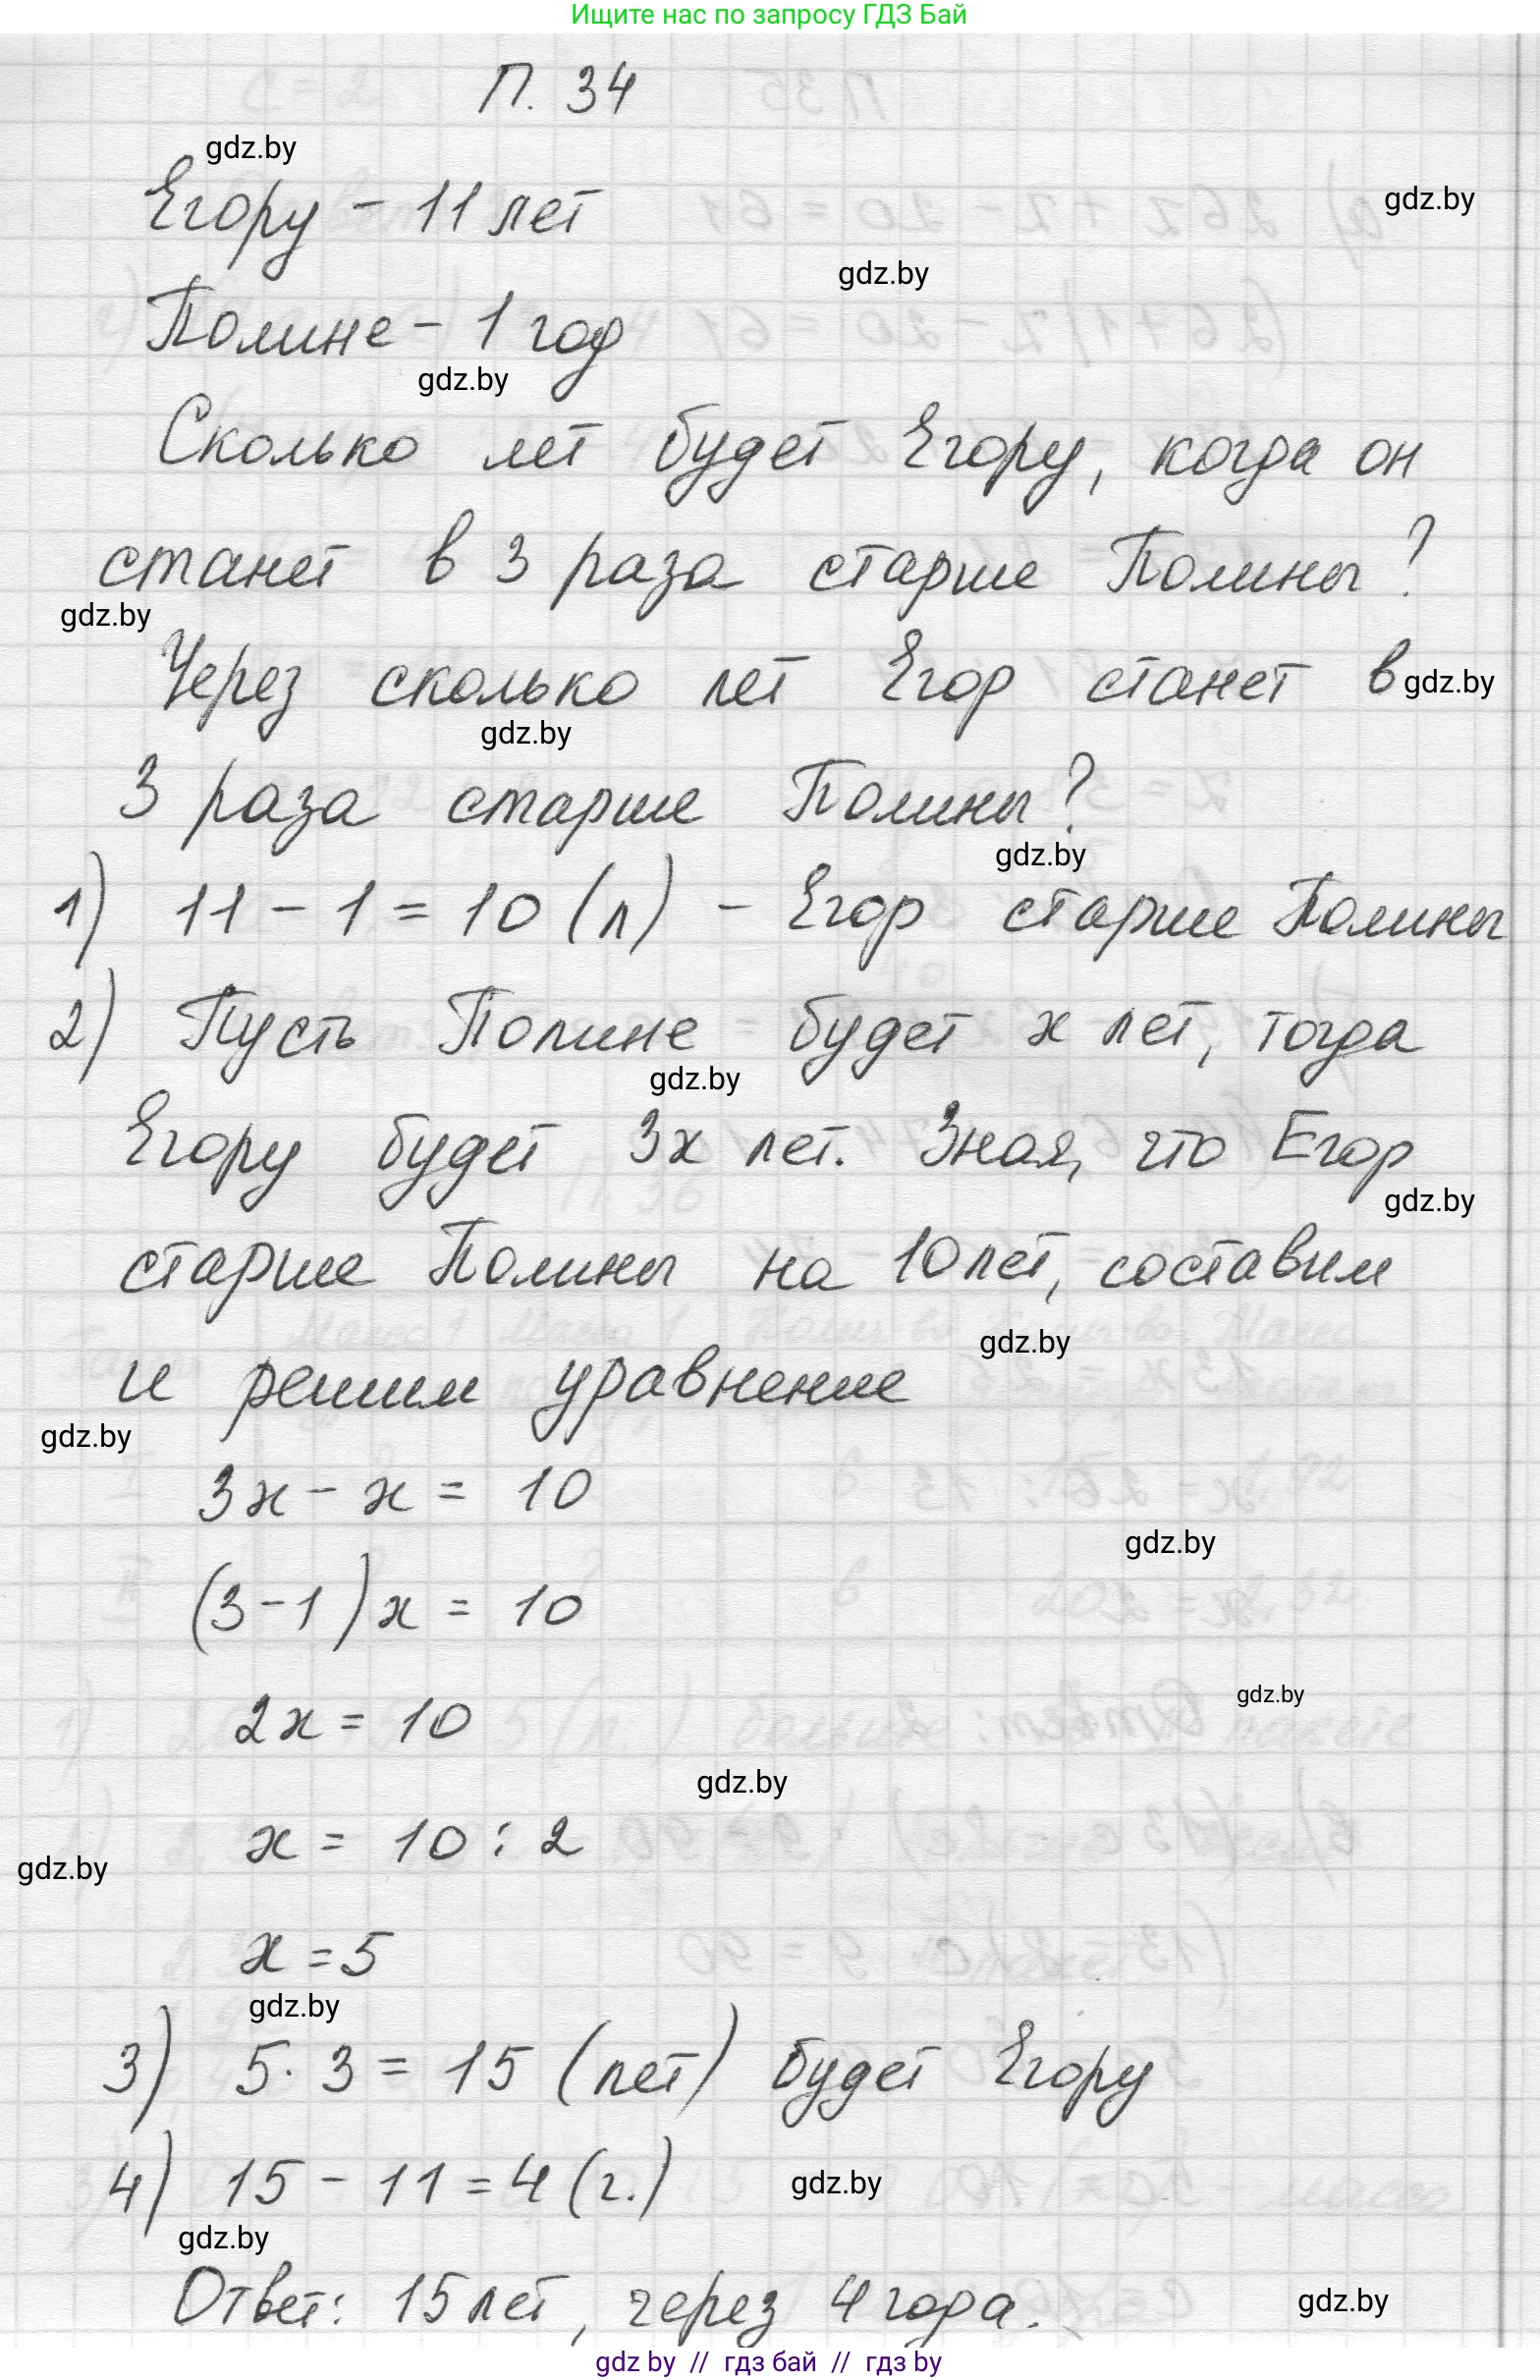 Ищите нас по запросу ГДЗ Бай
П. 34
gdz.by
Егору - 11 лет
gdz.by
gdz.by
Полине - 1 год
gdz.by
Сколько лет будет Егору, когда он
станет в 3 раза старше Полины?
gdz.by
Через сколько лет Егор станет в
gdz.by
gdz.by
3 раза старше Полины?
gdz.by
1) 11 - 1 = 10 (л) - Егор старше Полины
2) Пусть Полине будет x лет, тогда
gdz.by
Егору будет 3x лет. Зная, что Егор
gdz.by
старше Полины на 10 лет, составим
gdz.by
и решим уравнение
gdz.by
3x - x = 10
gdz.by
(3-1)x = 10
gdz.by
2x = 10
gdz.by
x = 10 : 2
gdz.by
x = 5
gdz.by
3) 5 · 3 = 15 (лет) будет Егору
4) 15 - 11 = 4 (г.)
gdz.by
gdz.by
Ответ: 15 лет, через 4 года.
gdz.by
gdz by // гдз бай // гдз by